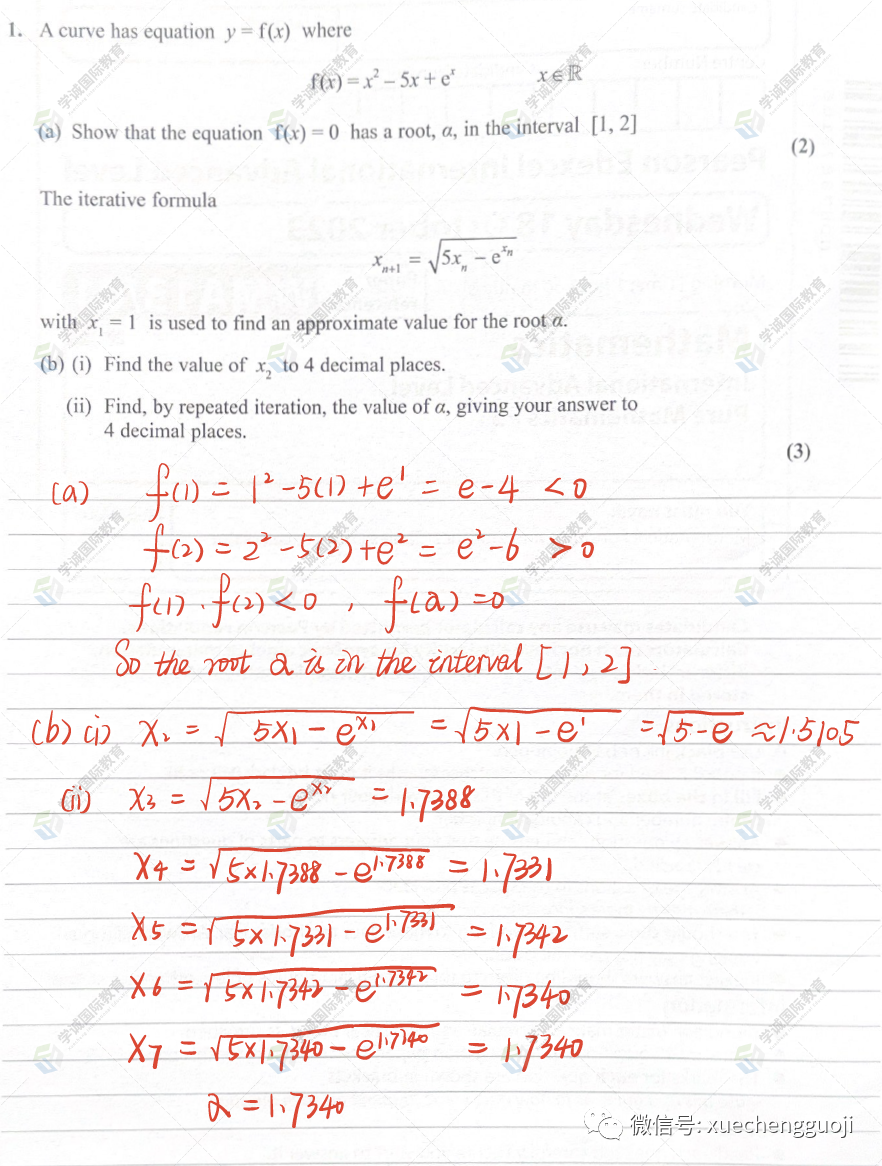 1. A curve has equation y = f(x) where
f(x) = x² – 5x + eˣ x ∈ ℝ
(a) Show that the equation f(x) = 0 has a root, α, in the interval [1, 2]
(2)
The iterative formula
xₙ₊₁ = √(5xₙ – e^(xₙ))
with x₁ = 1 is used to find an approximate value for the root α.
(b) (i) Find the value of x₂ to 4 decimal places.
(ii) Find, by repeated iteration, the value of α, giving your answer to
4 decimal places.
(3)
(a) f(1) = 1² - 5(1) + e¹ = e - 4 < 0
f(2) = 2² - 5(2) + e² = e² - 6 > 0
f(1) · f(2) < 0 , f(α) = 0
So the root α is in the interval [1, 2]
(b) (i) x₂ = √(5x₁ - e^(x₁)) = √(5×1 - e¹) = √(5 - e) ≈ 1.5105
(ii) x₃ = √(5x₂ - e^(x₂)) = 1.7388
x₄ = √(5×1.7388 - e^(1.7388)) = 1.7331
x₅ = √(5×1.7331 - e^(1.7331)) = 1.7342
x₆ = √(5×1.7342 - e^(1.7342)) = 1.7340
x₇ = √(5×1.7340 - e^(1.7340)) = 1.7340
α = 1.7340
微信号: xuechengguoji
学诚国际教育